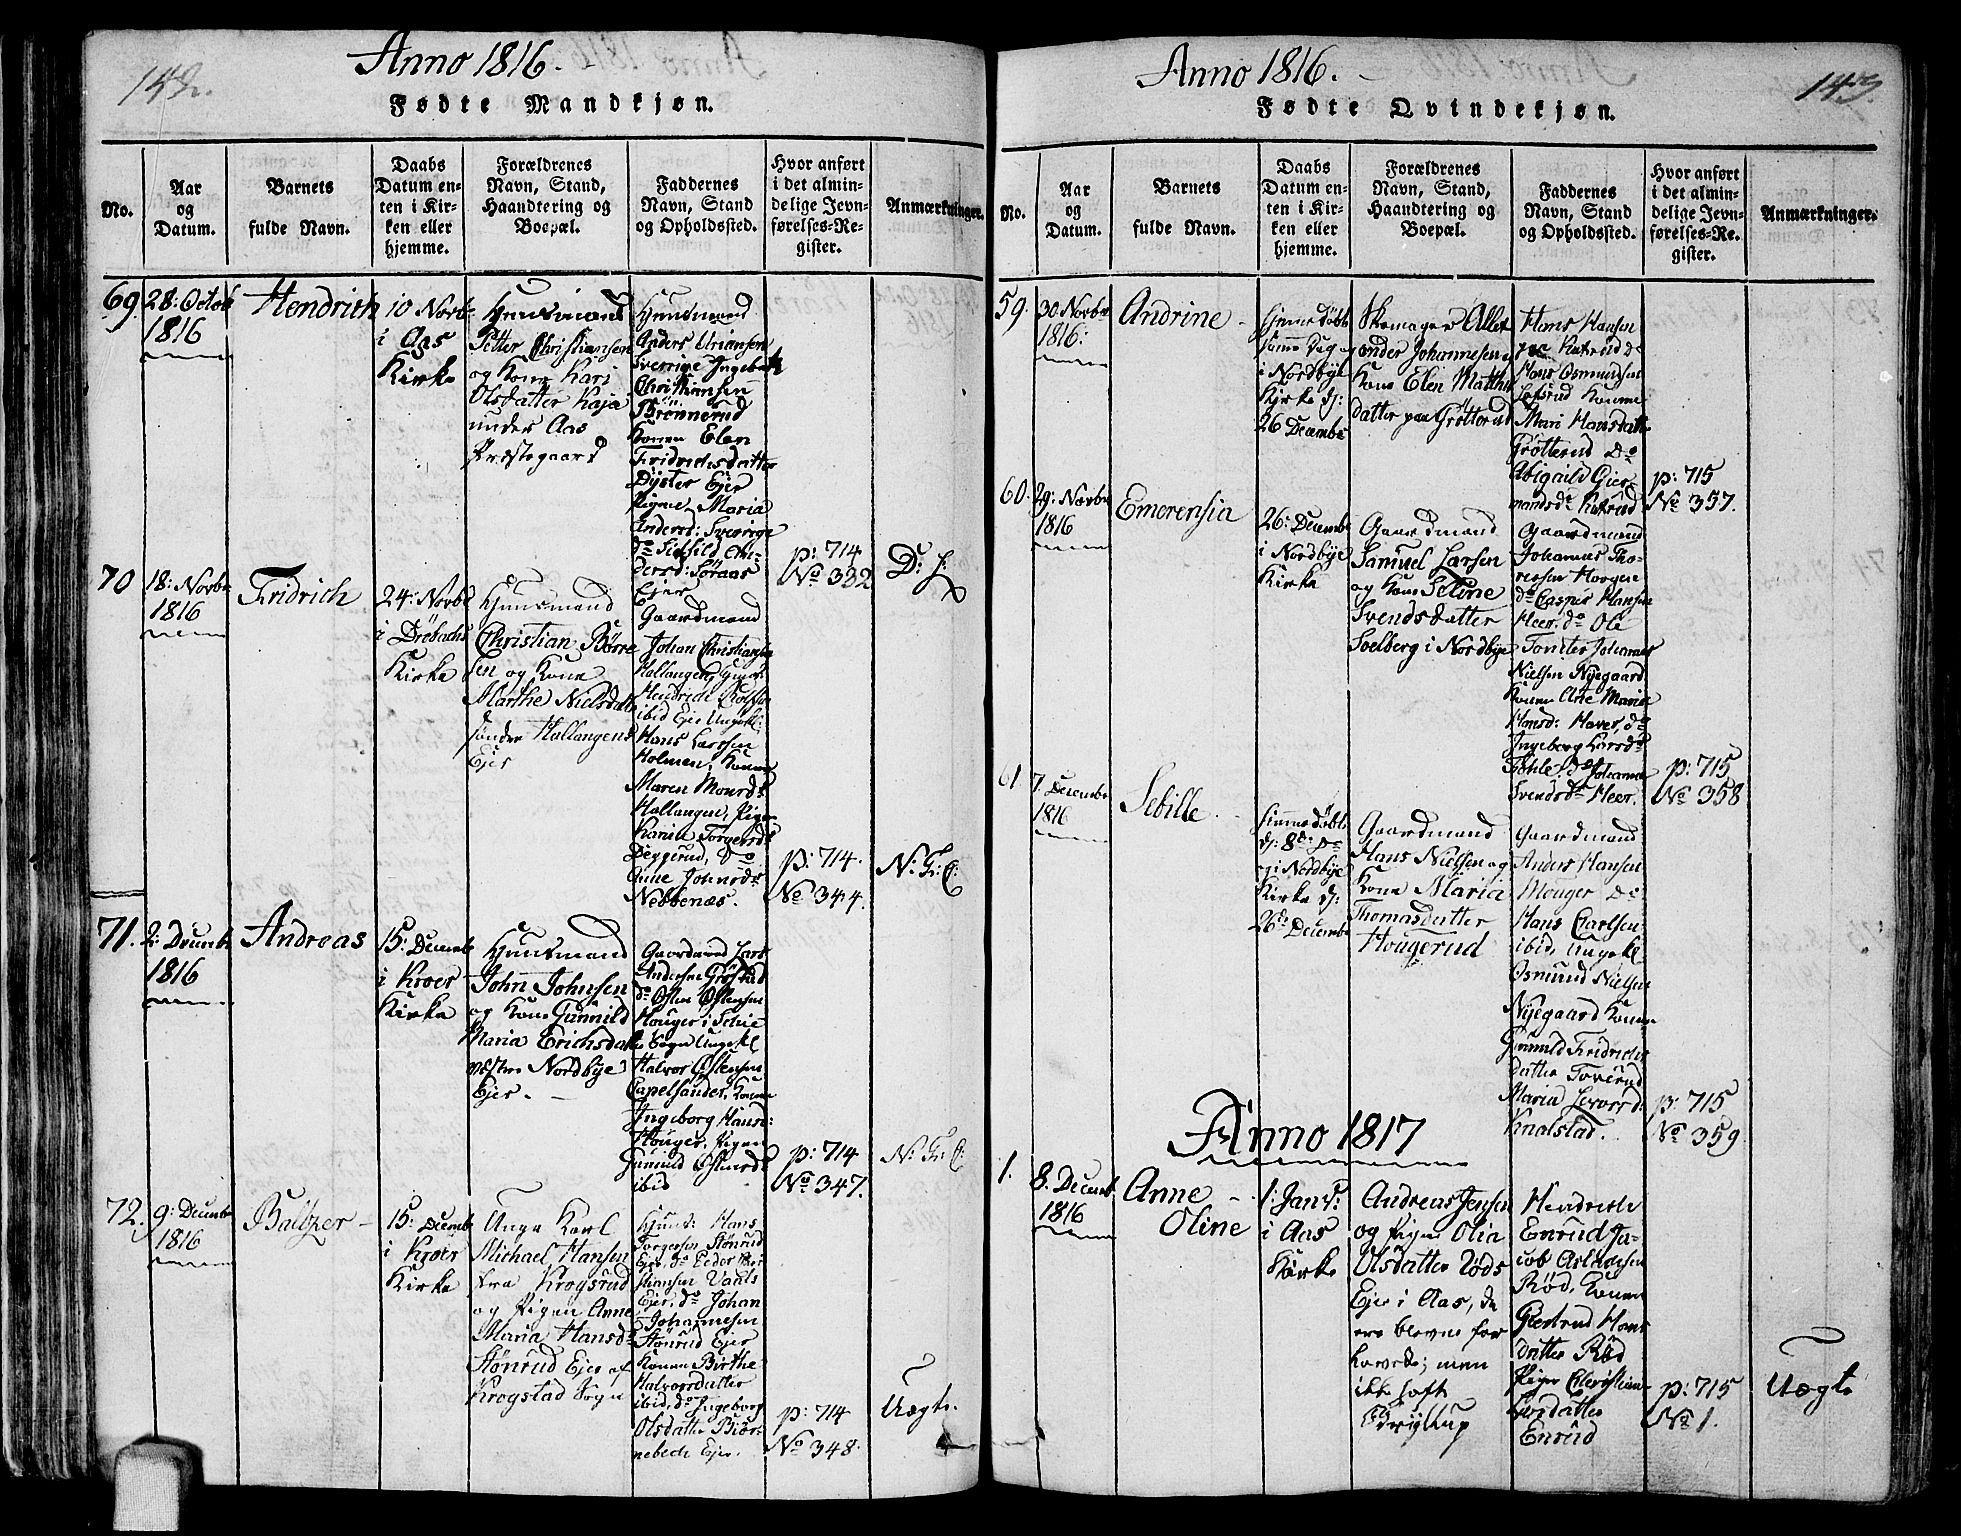 142.
Anno 1816.
Fødte Mandkjøn.
No.
Aar
og
Datum.
Barnets
fulde Navn.
Daabs
Datum en-
ten i Kir-
ken eller
hjemme.
Forældrenes
Navn, Stand,
Haandtering og
Boepæl.
Faddernes
Navn, Stand
og Opholdssted.
Hvor anført
i det almin-
delige Jevn-
førelses-Re-
gister.
Anmærkninger.
69.
28: Octob
1816
Hendrich
10 Novb
i Aas
Kirke
Huusmand
Petter Christiansen
og Kone Kari
Olsdatter Kaja
under Aas
Præstegaard
Huusmand
Anders Uriansen
Sverrige Ingebr
Christiansen
Brønnerud
Konen Elen
Fridrichsdatter
Dyster Ejer
Pigene Maria
Andersd: Sverrige
do Sidsild An-
dersd: Søraas
Ejer
p: 714
No 332
70
18: Novbr
1816
Fridrich
24: Novb
i Drøbachs
Kirke
Huusmand
Christian Børre
sen og Kone
Marthe Nielsdatt
søndre Hallangens
Ejer
Gaardmand
Johan Christiansen
Hallangen
Hendrich
ibid Ejer Ungekl:
Hans Larssen
Holmen, Konen
Maren Monsd:
Hallangen, Pigen
Karin Torgersd:
Deggerud, do
Anne Johnsd:
Nebbenæs.
p: 714.
No 344.
N: Gr: C:
71.
2: Decemb
1816
Andreas
15: Decemb
i Kroer
Kirke
Huusmand
John Johnsen
og Kone Gunnild
Maria Erichsdatt
væstre Nordbye
Ejer.
Gaardmand Lars
Andersen Grøstad
do Osten Ostensen
Houger i Schie
Sogn Ungekl
Halvor Ostensen
Capelsander, Konen
Ingeborg Hansd:
Houger, Pigen
Gunnild Ostensd:
ibid
p: 714
No 347.
N: Gr: C:
72.
9: Decemb
1816
Baltzer
15: Decemb
i Kroer
Kirke
Unge Karl
Michael Hansen
fra Krogsrud
og Pigen Anne
Maria Hansd:
Stønrud Ejer af
Krogstad Sogn
Huusm: Hans
Torgersen Stønrud
Ejer, do Peder Chri
stiansen Vands
Ejer, do Johan
Johannesen
Stønrud Ejer
Konen Birthe
Halvorsdatter
ibid, do Ingeborg
Olsdatter Biør-
nebech Ejer.
p: 714
No 348.
Uægte.
143.
Anno 1816.
Fødte Qvindekjøn.
No.
Aar
og
Datum.
Barnets
fulde Navn.
Daabs
Datum en-
ten i Kir-
ken eller
hjemme.
Forældrenes
Navn, Stand,
Haandtering og
Boepæl.
Faddernes
Navn, Stand
og Opholdssted.
Hvor anført
i det almin-
delige Jevn-
førelses-Re-
gister.
Anmærkninger.
59.
30 Novbr
1816:
Andrine
hjemmedøbt
samme Dag
i Nordbye
Kirke d:
26 Decembr
Skomager Allex
ander Johannesen
Kone Elen Matthi
datter paa Grøtterud
Hans Hansen
paa Kutrud do
Hans Osmundsen
Løfsrud Konen
Mari Hansdatt
Grøtterud Do
Abigaild Gier
mundsdr Kutrud
p: 715
No 357.
60.
29: Novbr
1816
Emerensia
26: Decembr
i Nordbye
Kirke
Gaardmand
Samuel Larsen
og Kone Seline
Svendsdatter
Solberg i Nordbye
Gaardmand
Johannes Tho-
resen Horgen
do Casper Hansen
Heer, do Ole
Tomter Johannes
Nielsen Nyegaard
Konen Ane Maria
Hansd: Haver, do
Ingeborg Larsd:
Fohle, do Johanne
Svendsdr Heer.
p: 715
No 358
61
7. Decembr
1816
Sebille
hjemmedøbt
d: 8de Do
i Nordbye
Kirke d:
26de Decembr
Gaardmand
Hans Nielsen og
Kone Maria
Thomasdatter
Hougerud
Gaardmand
Anders Hansen
Mouger Do
Hans Carlsen
ibid, Ungekl
Osmund Nielsen
Nyegaard Konen
Gunnild Fridrichs
datter Toverud
Maria Sivers d:
Knalstad.
p: 715
No 359
Anno 1817
1.
8. Decemb
1816
Anne
Oline
1: Janvr:
i Aas
Kirke
Andreas Jensen
og Pigen Olia
Olsdatter Røds
Ejer i Aas, de
ere blevne for
lovede; men
ikke haft
Bryllup
Hendrich
Enrud Ja-
cob Aslachsen
Rød, Konen
Gertrud Hans
datter Rød
Pigen Christiane
Larsdatter
Enrud
p: 715
No 1.
Uægte